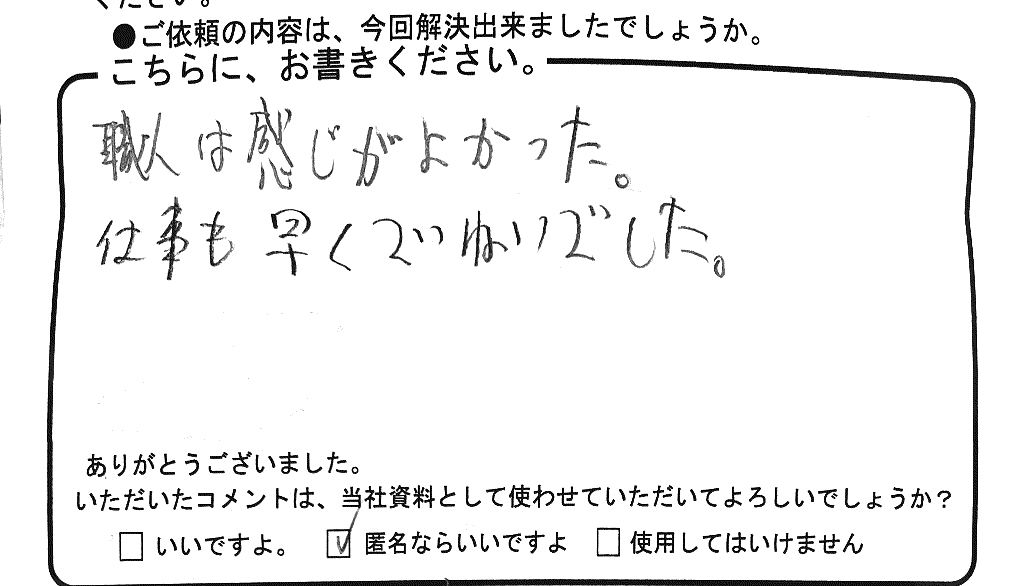 ください。
●ご依頼の内容は、今回解決出来ましたでしょうか。
こちらに、お書きください。
職人は感じがよかった。
仕事も早くていねいでした。
ありがとうございました。
いただいたコメントは、当社資料として使わせていただいてよろしいでしょうか？
□ いいですよ。 ☑ 匿名ならいいですよ □ 使用してはいけません